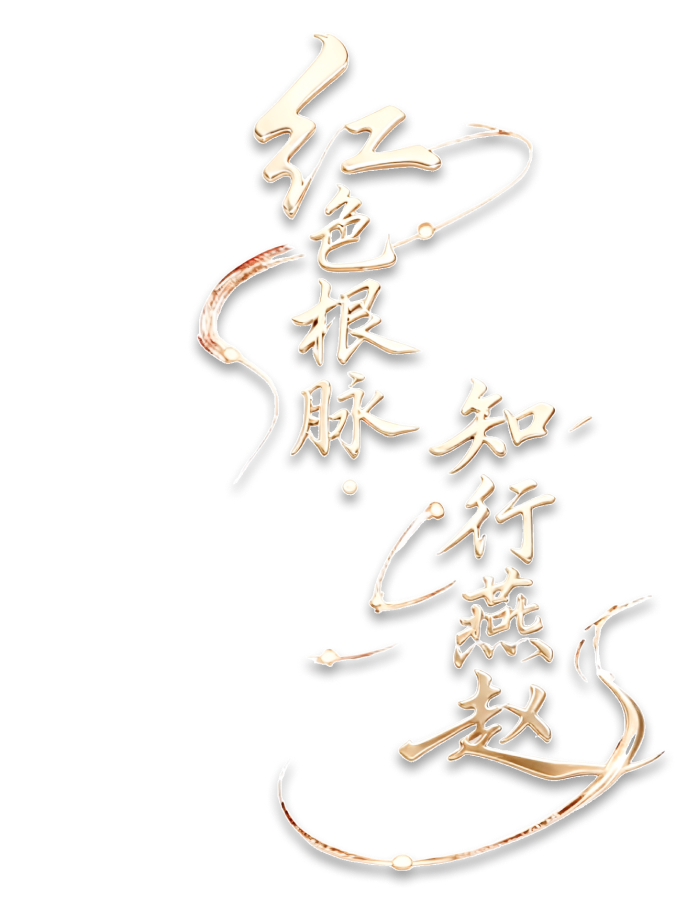 红色根脉
知行燕赵